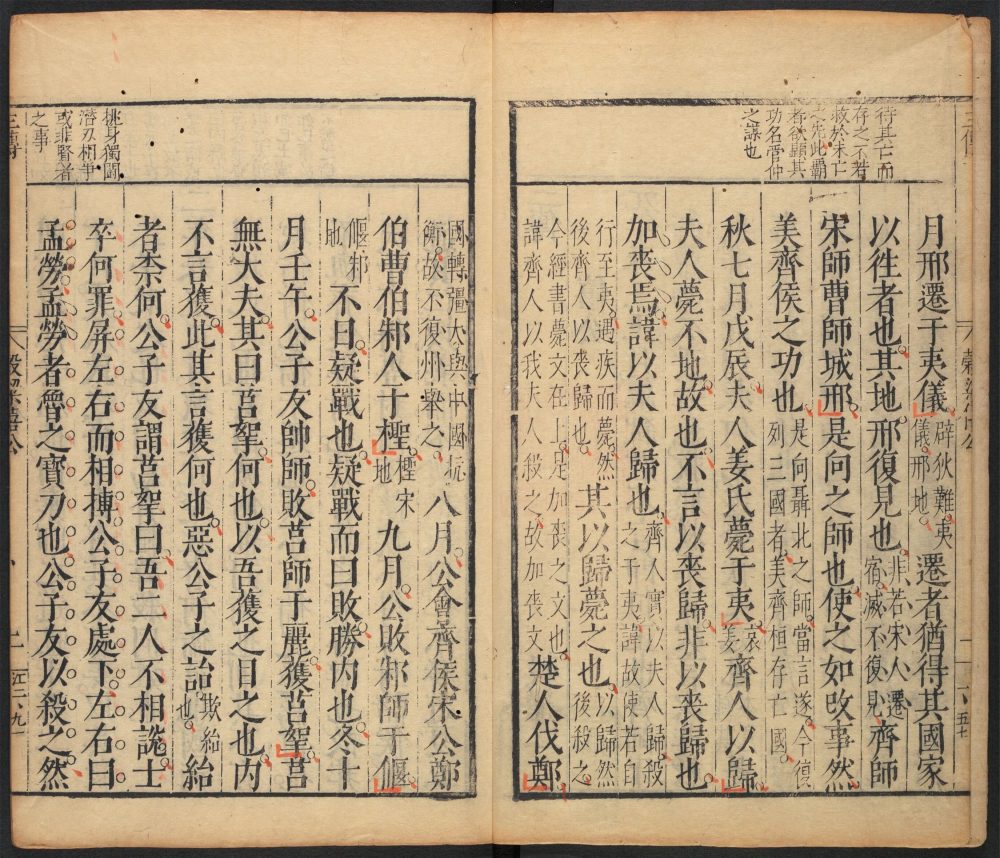 待其亡而
存之不若
救於未亡
之先此霸
者欲顯其
功名管仲
之謀也
月邢遷于夷儀辟狄難夷儀邢地遷者猶得其國家
以往者也其地邢復見也非若宋人遷宿滅不復見齊師
宋師曹師城邢是向之師也使之如改事然
美齊侯之功也是向聶北之師當言遂今復列三國者美齊桓存亡國
秋七月戊辰夫人姜氏薨于夷哀姜齊人以歸
夫人薨不地故也不言以喪歸非以喪歸也
加喪焉諱以夫人歸也齊人實以夫人歸殺之于夷諱故使若自
行至夷遇疾而薨然後齊人以喪歸也其以歸薨之也以歸然後殺之
今經書薨文在上是加喪之文也諱齊人以我夫人殺之故加喪文楚人伐鄭
挑身獨鬭
潛刃相爭
或非賢者
之事
國轉彊大與中國抗衡故不復州舉之八月公會齊侯宋公鄭
伯曹伯邾人于檉檉宋地九月公敗邾師于偃
偃邾地不日疑戰也疑戰而曰敗勝內也冬十
月壬午公子友帥師敗莒師于麗獲莒挐莒
無大夫其曰莒挐何也以吾獲之目之也內
不言獲此其言獲何也惡公子之詒欺紿也紿
者柰何公子友謂莒挐曰吾二人不相說士
卒何罪屏左右而相搏公子友處下左右曰
孟勞孟勞者魯之寶刀也公子友以殺之然
穀梁僖公